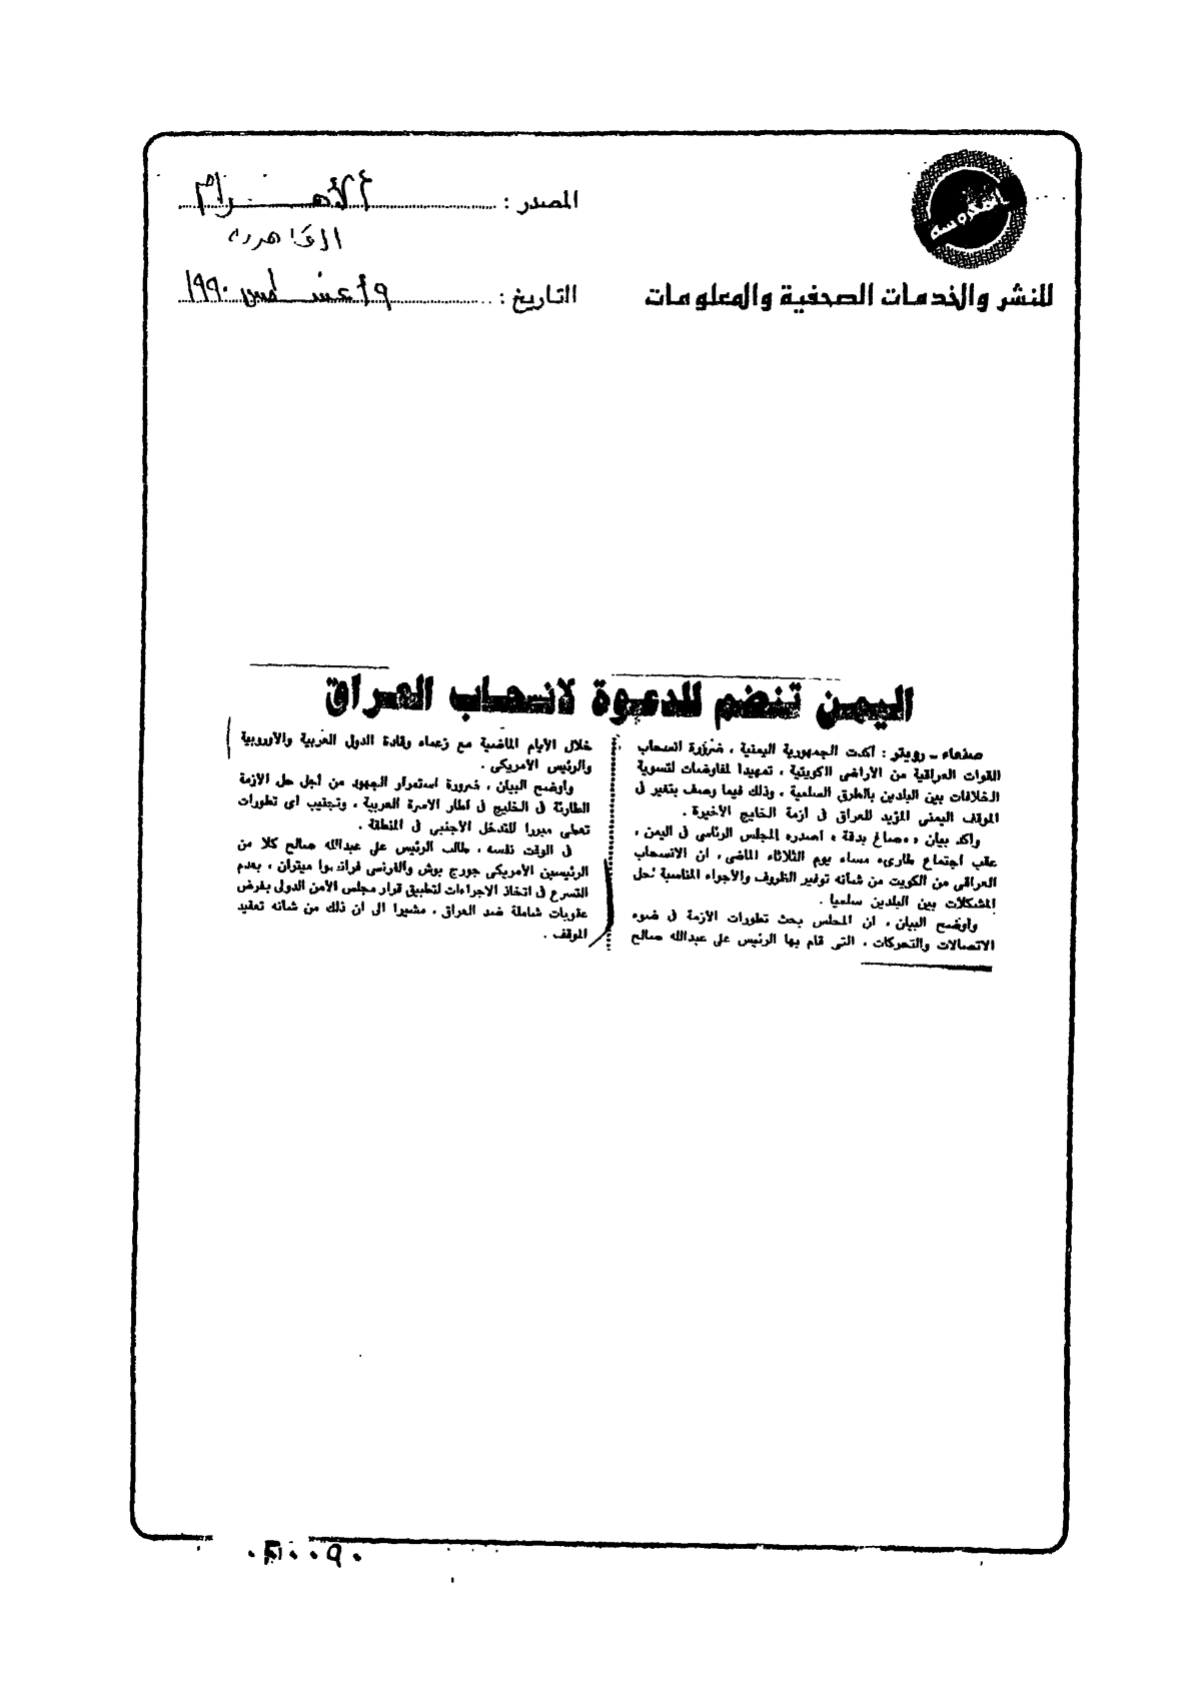 المحروسه
للنشر والخدمات الصحفية والمعلومات
المصدر : الأهـــرام
القاهرة
التاريخ : ٩ أغسطس ١٩٩٠
اليمن تنضم للدعوة لانسحاب العراق
صنعاء ـ رويتر : اكدت الجمهورية اليمنية ، ضرورة انسحاب
القوات العراقية من الأراضى الكويتية ، تمهيدا لمفاوضات لتسوية
الخلافات بين البلدين بالطرق السلمية ، وذلك فيما وصف بتغير فى
الموقف اليمنى المؤيد للعراق فى ازمة الخليج الأخيرة .
واكد بيان ، «صاغ بدقة » اصدره المجلس الرئاسى فى اليمن ،
عقب اجتماع طارىء مساء يوم الثلاثاء الماضى ، ان الانسحاب
العراقى من الكويت من شأنه توفير الظروف والأجواء المناسبة لحل
المشكلات بين البلدين سلميا .
وأوضح البيان ، ان المجلس بحث تطورات الأزمة فى ضوء
الاتصالات والتحركات ، التى قام بها الرئيس على عبدالله صالح
خلال الأيام الماضية مع زعماء وقادة الدول العربية والأوروبية
والرئيس الأمريكى .
وأوضح البيان ، ضرورة استمرار الجهود من أجل حل الأزمة
الطارئة فى الخليج فى اطار الاسرة العربية ، وتجنيب اى تطورات
تعطى مبررا للتدخل الأجنبى فى المنطقة .
فى الوقت نفسه ، طالب الرئيس على عبدالله صالح كلا من
الرئيسين الأمريكى جورج بوش والفرنسى فرانسوا ميتران ، بعدم
التسرع فى اتخاذ الاجراءات لتطبيق قرار مجلس الأمن الدولى بفرض
عقوبات شاملة ضد العراق ، مشيرا الى ان ذلك من شانه تعقيد
الموقف .